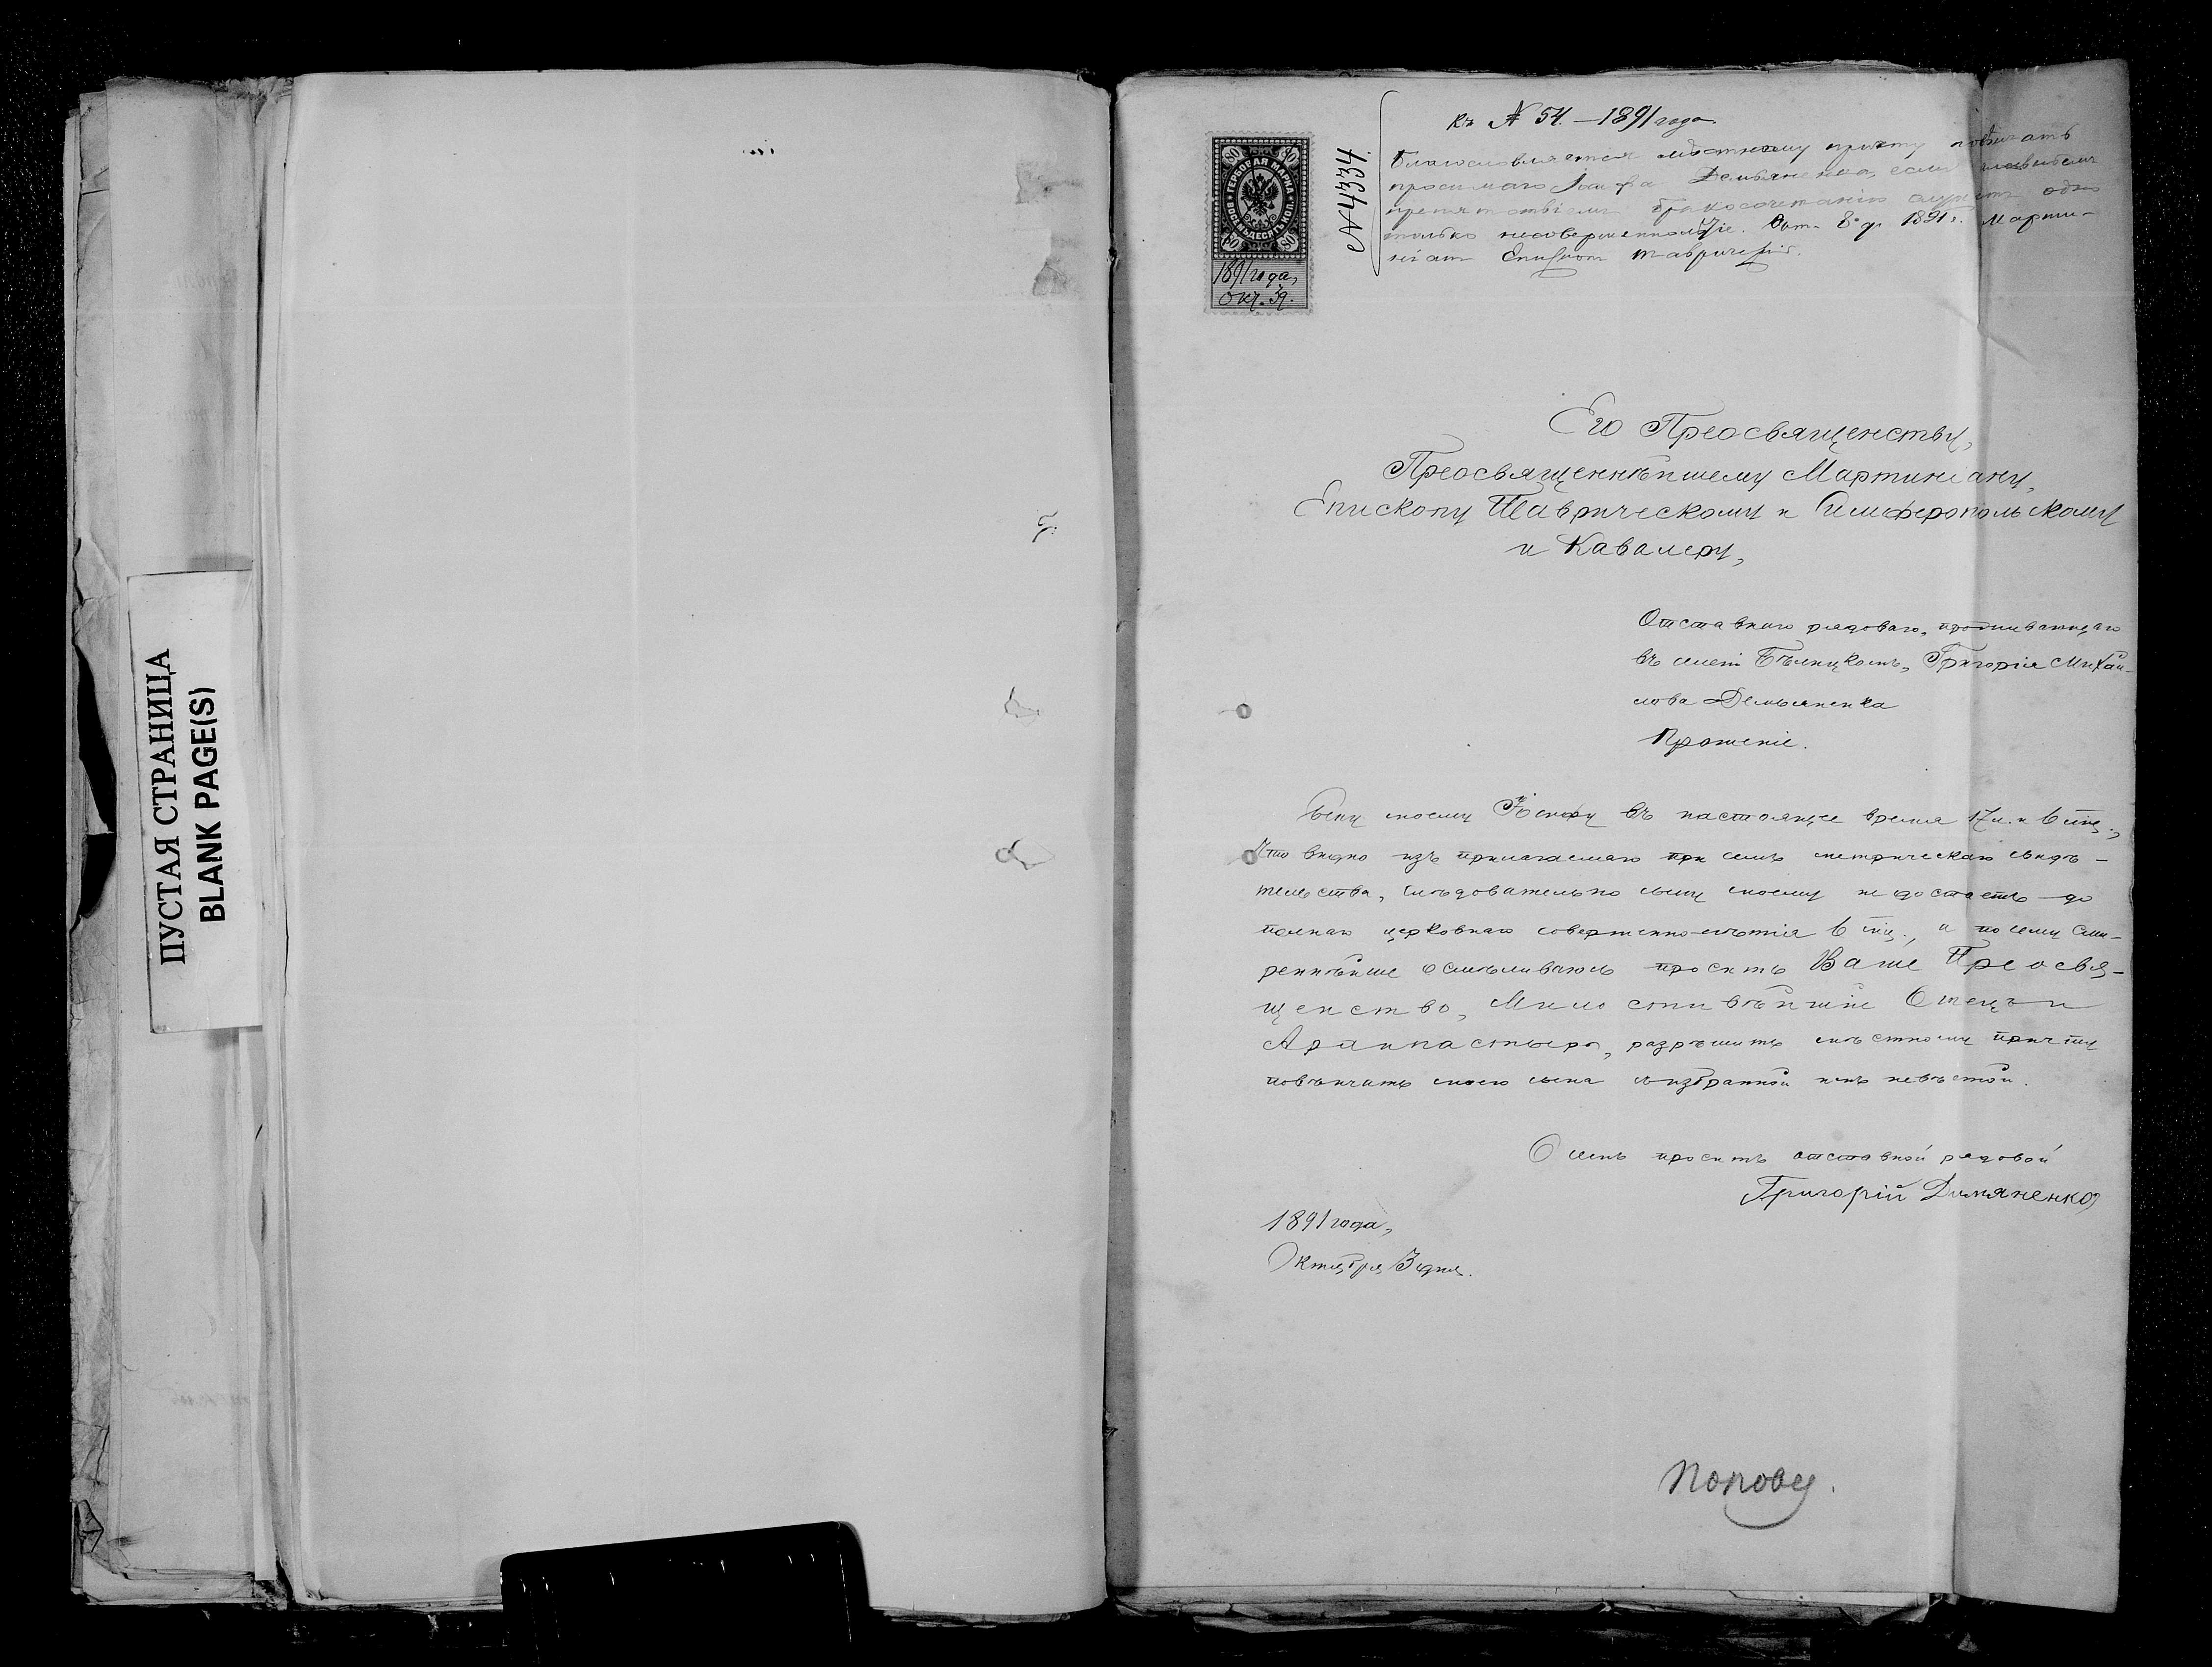 ПУСТАЯ СТРАНИЦА
BLANK PAGE(S)
Къ № 54. — 1891 года
№ 4334.
Благословляется мѣстному причту повѣнчать
просимаго Іосифа Демьяненка, если
препятствіемъ бракосочетанію служитъ одно
только несовершеннолѣтіе. Окт. 8 д. 1891 г. Марти-
ніанъ Епископъ Таврическій.
ГЕРБОВАЯ МАРКА
ВОСЕМЬДЕСЯТЪ КОП.
80 80
80 80
1891 года,
Окт. 3 д.
Его Преосвященству,
Преосвященнѣйшему Мартиніану,
Епископу Таврическому и Симферопольскому
и Кавалеру,
Отставнаго рядоваго, проживающаго
въ селеніи Григорія Михай-
лова Демьяненка
Прошеніе.
Сыну моему Іосифу въ настоящее время 17 л. и 6 мѣс.,
что видно изъ прилагаемаго при семъ метрическаго свидѣ-
тельства, слѣдовательно сыну моему не достаетъ до
полнаго церковнаго совершенно-лѣтія 6 мѣс., а посему сми-
реннѣйше осмѣливаюсь просить Ваше Преосвя-
щенство, Милостивѣйшій Отецъ и
Архипастырь, разрѣшить мѣстному причту
повѣнчать моего сына съ избранной имъ невѣстой.
О семъ проситъ отставной рядовой
Григорій Димяненко
1891 года,
Октября 3 дня.
Попову.